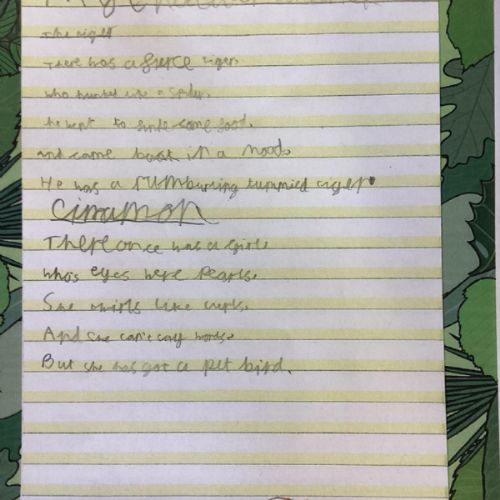 My
The tiger
There was a fierce tiger,
who hunted like a spider.
he went to some food,
and came back in a mood.
He was a rumbuning tummied tiger.
Cinnamon
There once was a girl
who's eyes were Pearls.
She twirls like curls.
And she can't say words.
But she has got a pet bird.